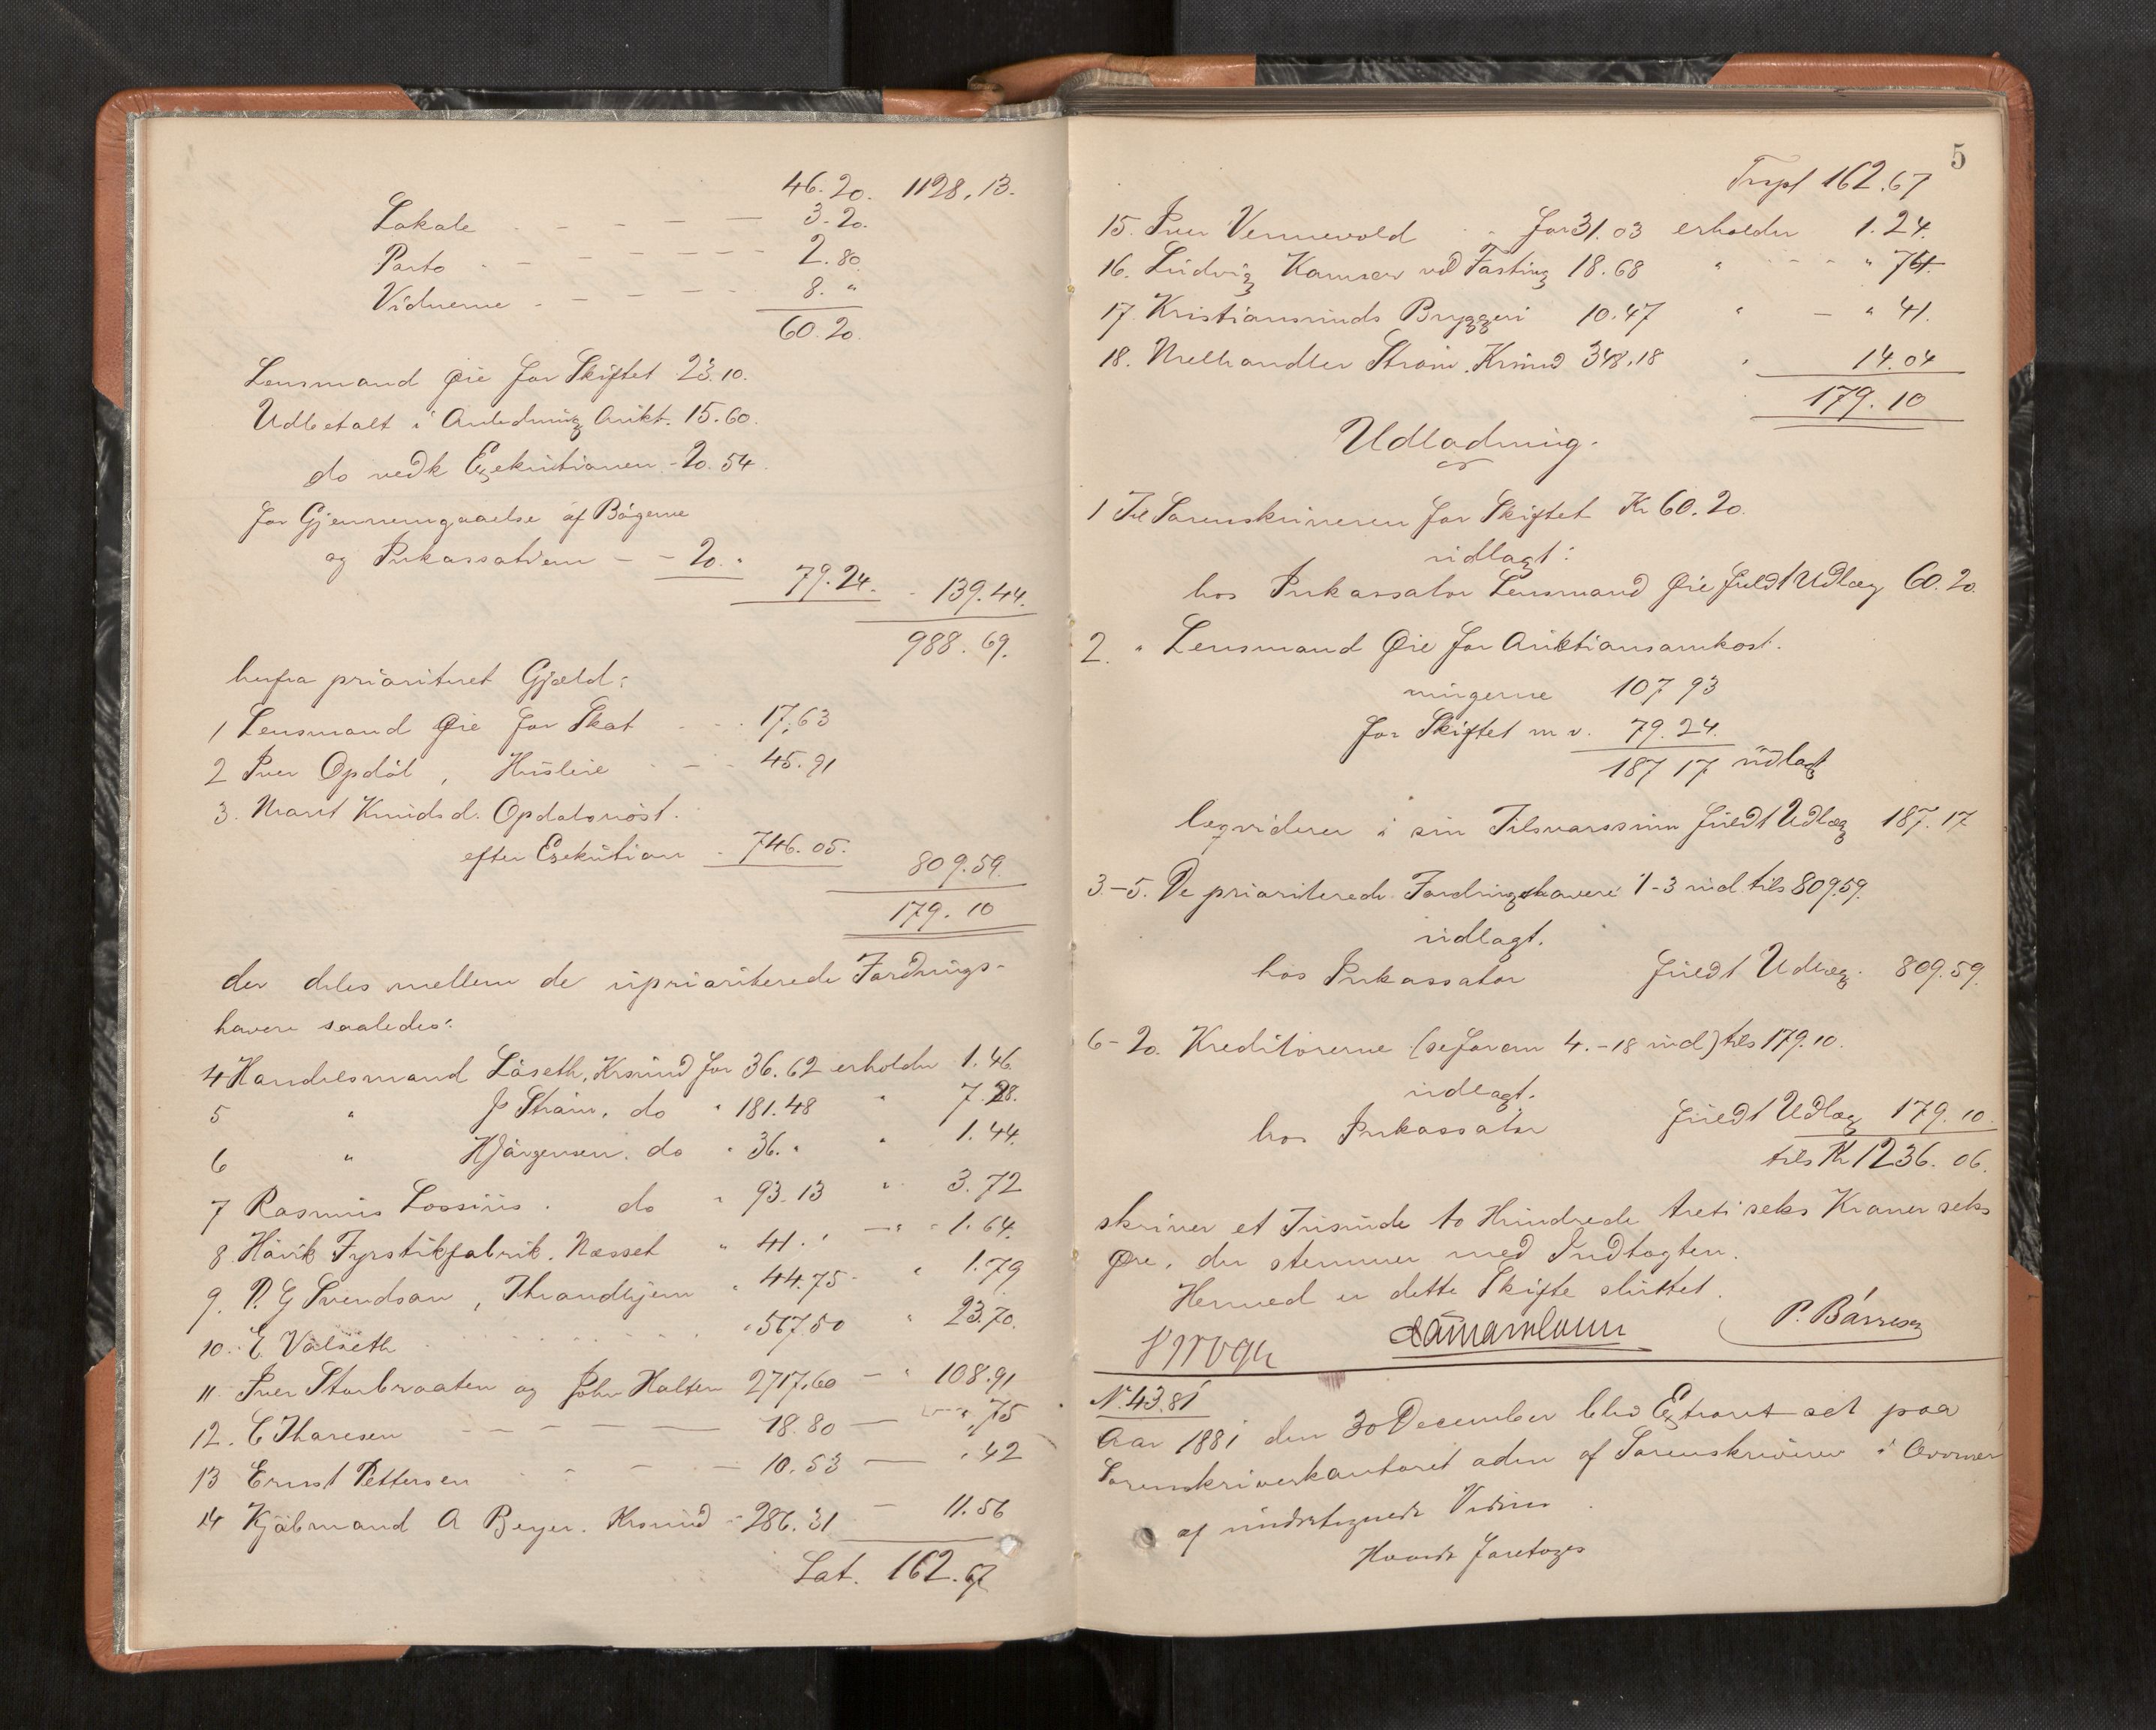 46.20. 1128.13.
Lokale - - - 3.20.
Porto - - - - - 2.80
Vidnerne - - - - - 8. "
60.20.
Lensmand Øie for Skiftet 23.10.
Udbetalt i Anledning Aukt. 15.60.
do vedk Exekutionen - 20.54.
for Gjennemgaaelse af Bøgerne
og Inkassationen - - 20. "
79.24. - 139.44.
988.69.
herfra prioriteret Gjæld:
1 Lensmand Øie for Skat - - - 17.63
2 Iver Opdøl, Husleie - - - 45.91
3. Marit Knudsd. Opdølsnøst.
efter Exekution - 746.05. 809.59.
179.10
der deles mellem de uprioriterede Fordrings-
havere saaledes:
4 Handelsmand Løseth, Krsund for 36.62 erholder 1.46
5 " J Strøm, do " 181.48 " 7.28.
6 " H Jørgensen. do " 36. " " 1.44.
7 Rasmus Lossius. do " 93.13 " 3.72
8. Høvik Fyrstikfabrik. Næsset " 41. " - " 1.64.
9. P. G Svendsen, Throndhjem " 44.75 - " 1.79
10. E. Vølseth - - - - - " 567.50 " 23.70.
11. Iver Storbraaten og John Halten 2717.60 — " 108.91
12. C Thoresen - - - — 18.80 — - - ".75
13 Ernst Pettersen - - - - — 10.53 — ".42
14 Kjøbmand A Beyer. Krsund - 286.31 — 11.56
Lat. 162.67
5
Trspt 162.67
15. Iver Vennevold - for 31.03 erholder 1.24.
16. Ludvig Hansen ved Fasting 18.68 " - - - " 74.
17. Kristiansunds Bryggeri 10.47 " — " 41.
18. Melhandler Strøm. Krsund 348.18 " 14.04
179.10
Udlodning.
1 Til Sorenskriveren for Skiftet Kr 60.20.
udlagt:
hos Inkassator Lensmand Øie fuldt Udlæg 60.20.
2. " Lensmand Øie for Auktionsomkost.
ningerne 107 93
for Skiftet m v. 79.24.
187 17 udlagt
liqviderer i sin Tilsvarssum fuldt Udlæg 187.17
3.-5. De prioriterede Fordringshavere 1-3 incl tils 809.59.
udlagt.
hos Inkassator fuldt Udlæg. 809.59.
6-20. Kreditorerne (se foran 4.-18 incl) tils 179.10.
udlagt.
hos Inkassator fuldt Udlæg 179.10.
tils Kr 1236.06.
skriver et Tusinde to Hundrede treti seks Kroner seks
Øre, der stemmer med Indtægten.
Hermed er dette Skifte sluttet.
P. Børresen
No 43.81
Aar 1881 den 30 December blev Extraret sat paa
Sorenskriverkontoret aden af Sorenskriveren i Overvær
af undertegnede Vidner
Hvorda foretoges